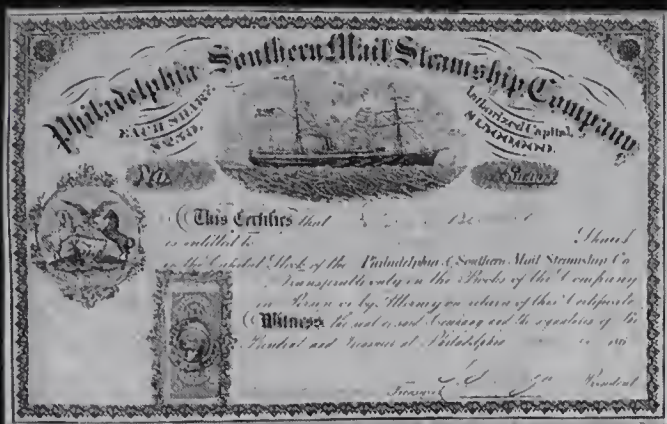 Philadelphia Southern Mail Steamship Company
EACH SHARE
$250.
Authorized Capital,
$1,500,000.
No.
Shares
This Certifies that
is entitled to Shares
in the Capital Stock of the Philadelphia & Southern Mail Steamship Co
Transferable only on the Books of the Company
in Person or by Attorney on return of this Certificate
Witness the seal of said Company and the signatures of the
President and Treasurer at Philadelphia
Treasurer President